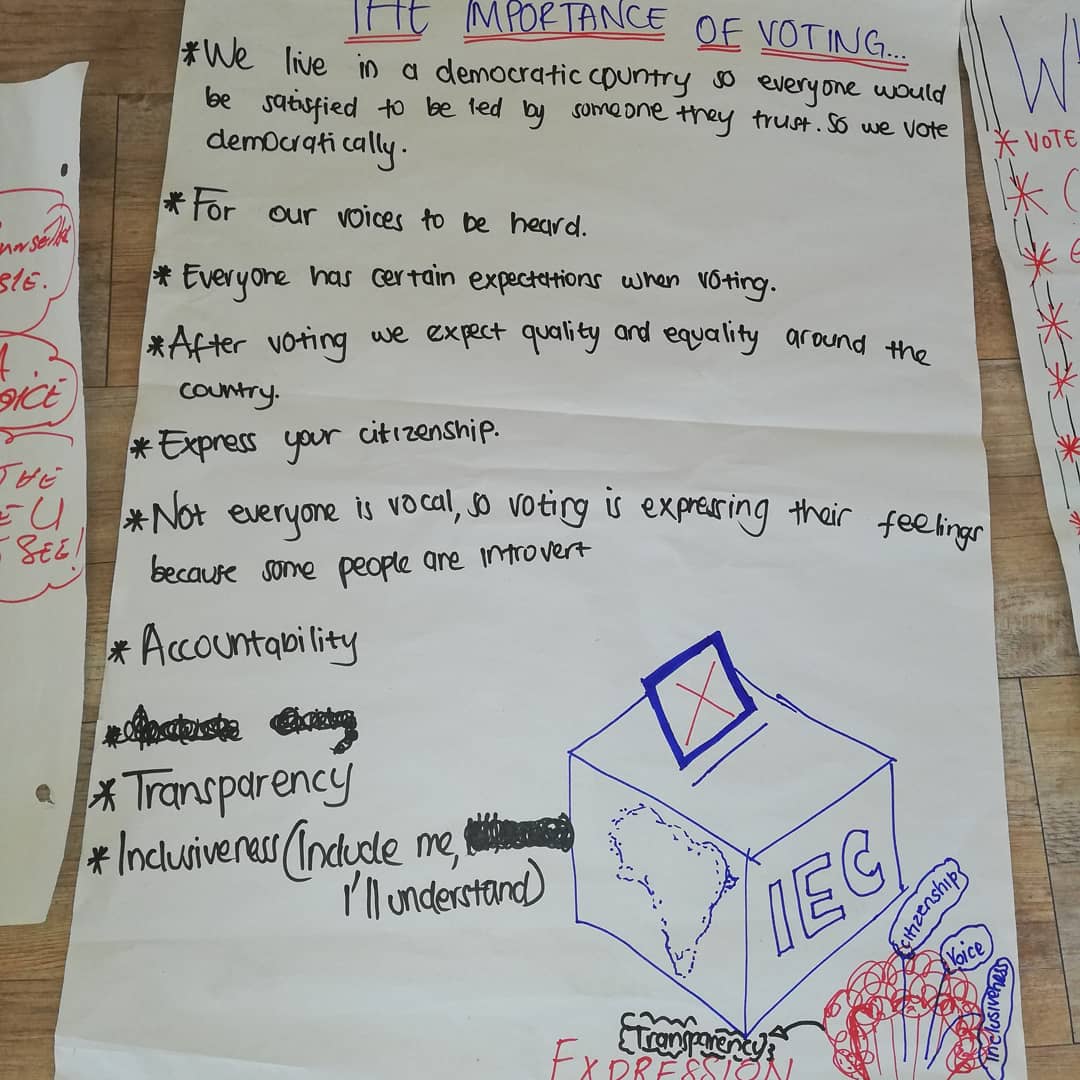 THE IMPORTANCE OF VOTING...
*We live in a democratic country so everyone would
be satisfied to be led by someone they trust. So we vote
democratically.
*For our voices to be heard.
* Everyone has certain expectations when voting.
*After voting we expect quality and equality around the
country.
* Express your citizenship.
*Not everyone is vocal, so voting is expressing their feelings
because some people are introvert
* Accountability
* Transparency
* Inclusiveness (Include me,
I'll understand)
X
IEC
citizenship
Voice
Inclusiveness
Transparency
EXPRESSION
* VOTE
THE
U
SEE!